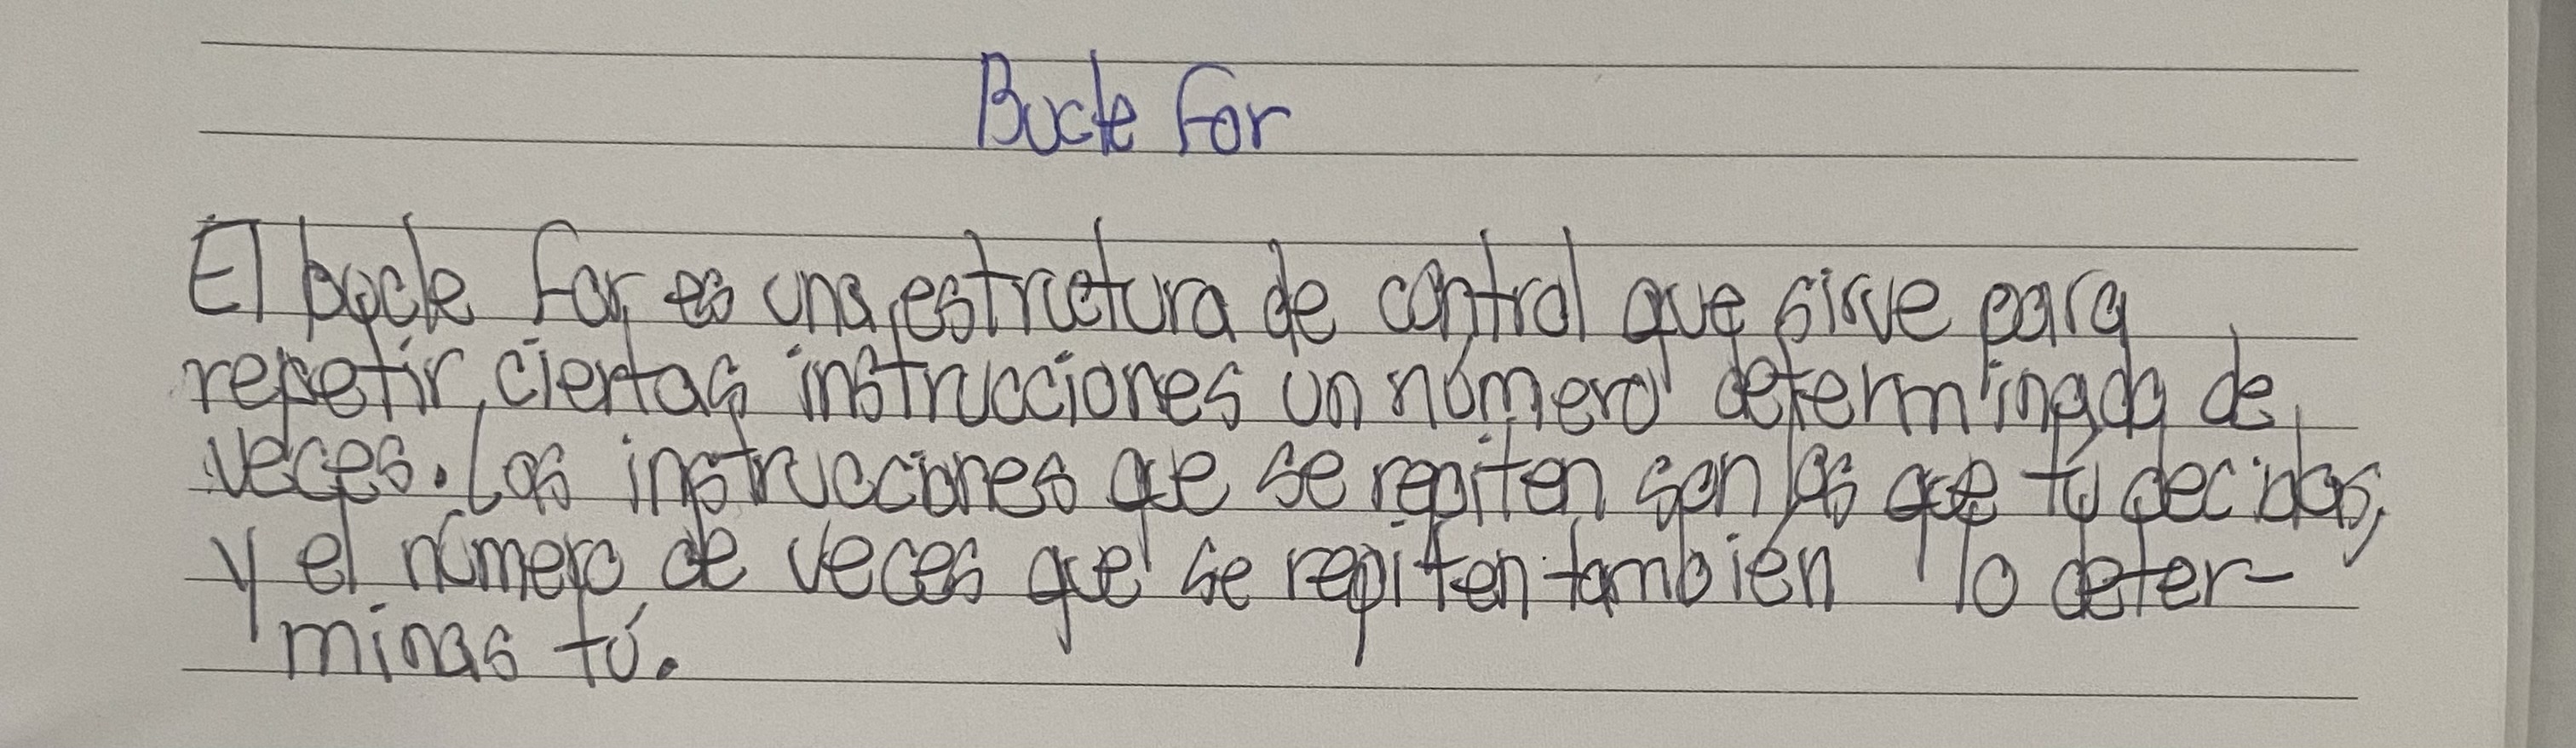 Bucle For
El bucle for es una estructura de control que sirve para
repetir ciertas instrucciones un número determinado de
veces. Las instrucciones que se repiten son las que tú decidas,
y el número de veces que se repiten también lo deter-
minas tú.